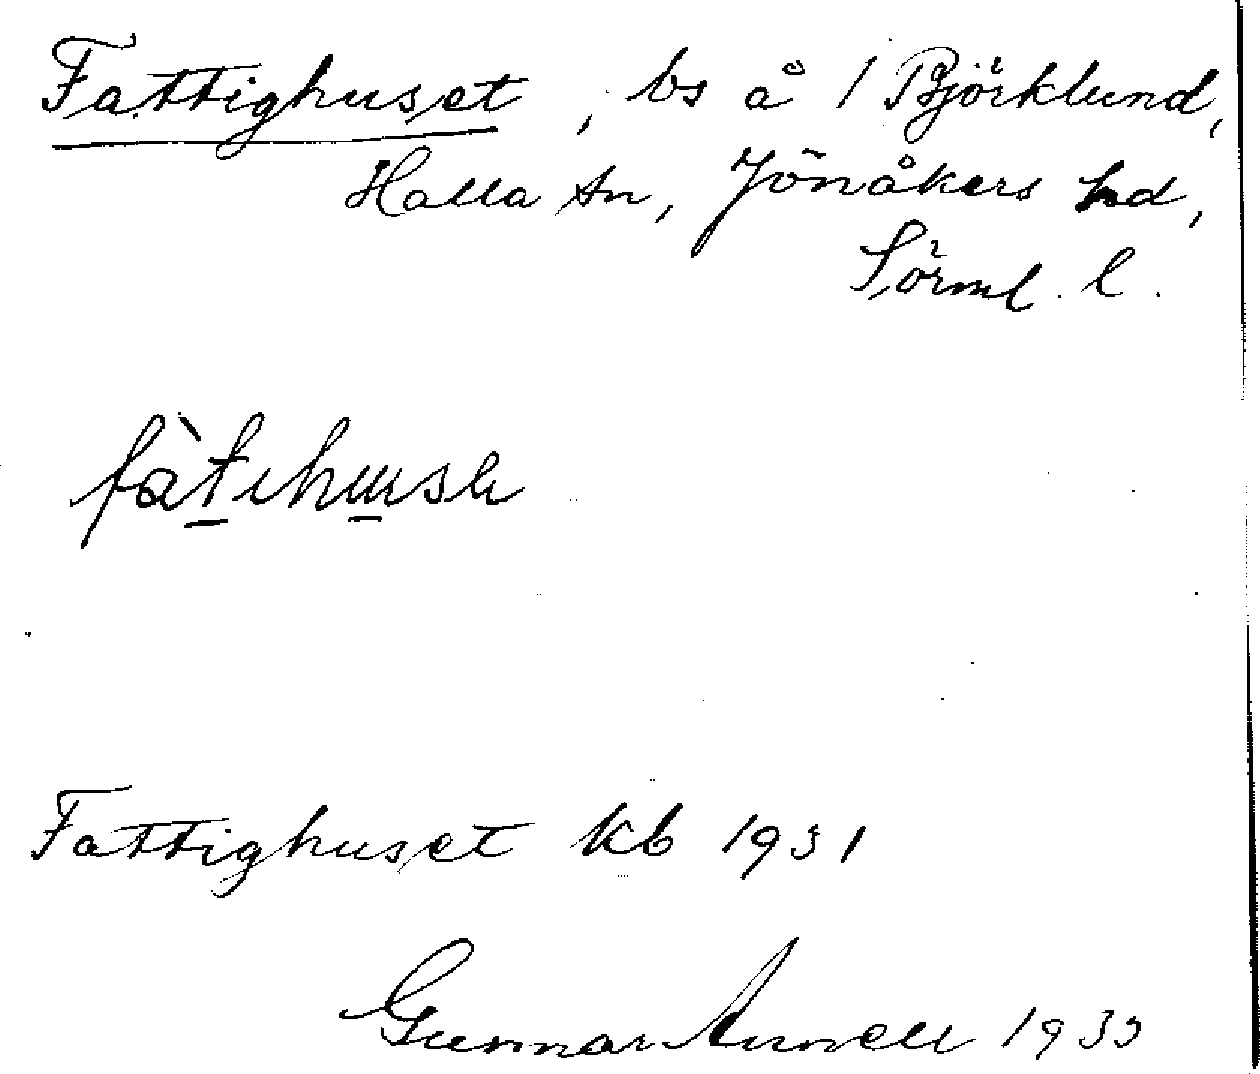 Fattighuset, bs å 1 Björklund,
Halla sn, Jönåkers hd,
Sörml. l.
Fattighuset kb 1931
Gunnar Annell 1935